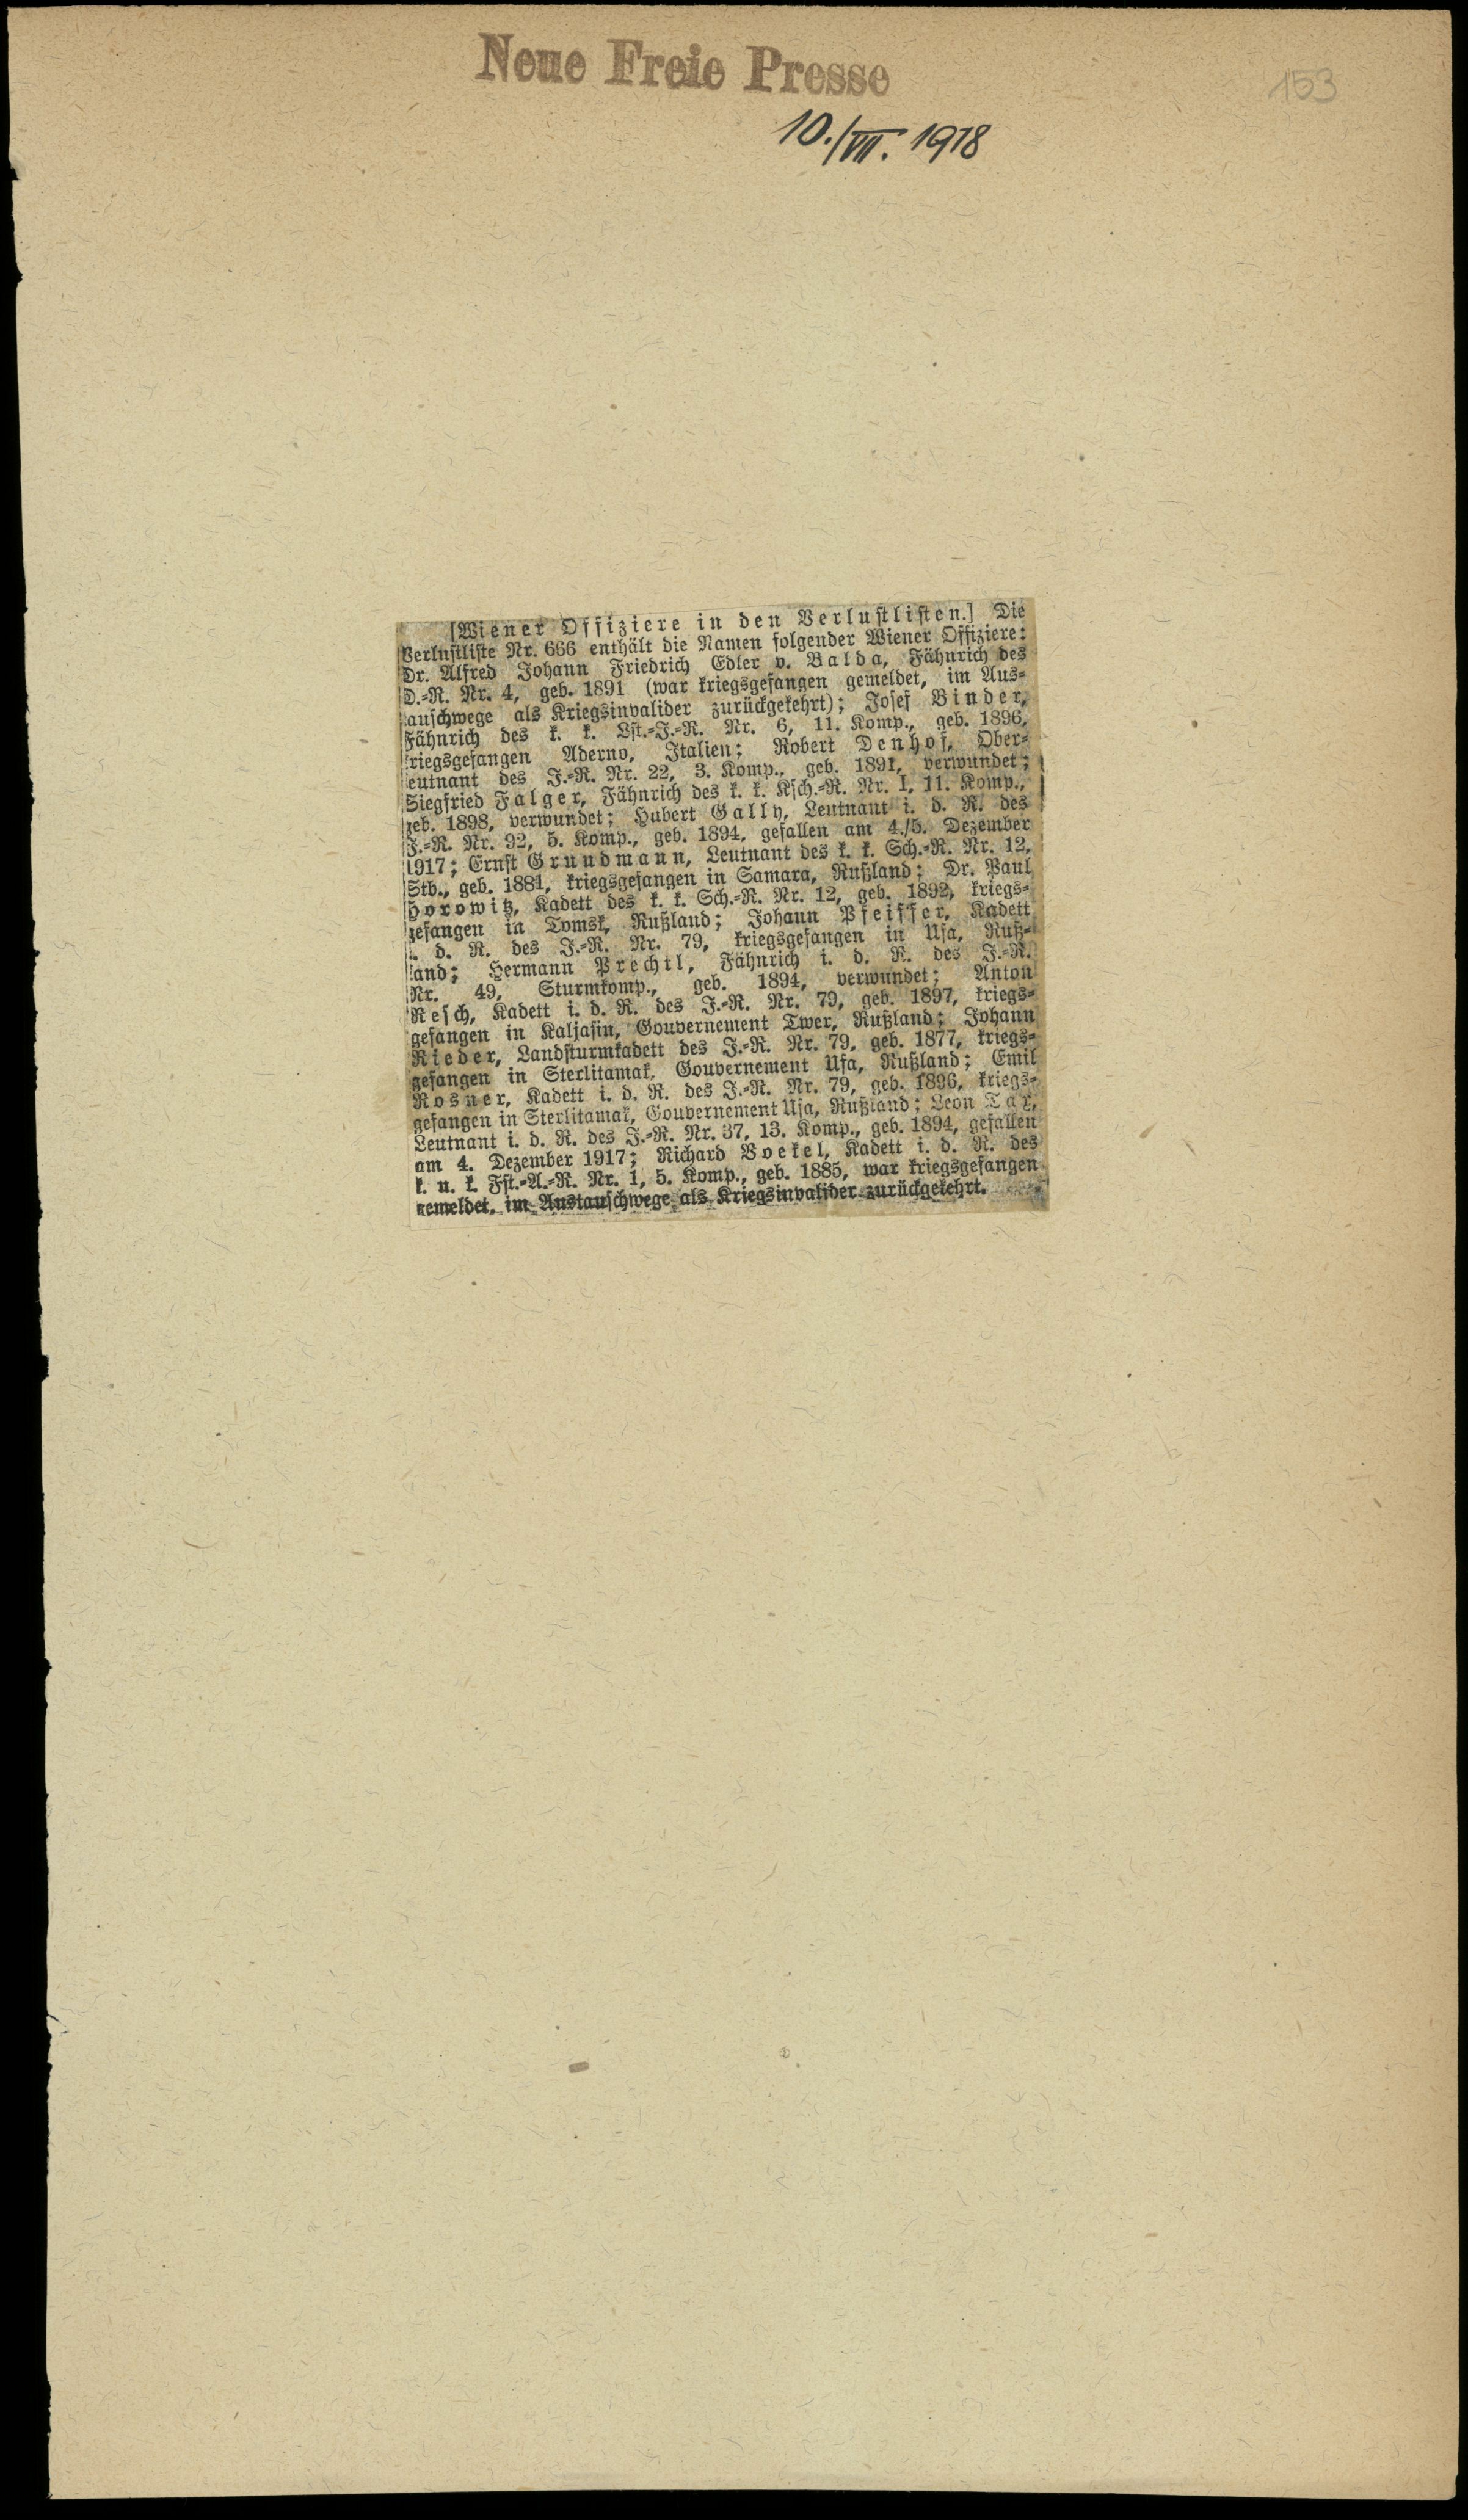 Neue Freie Presse
153
10./VII. 1918
[Wiener Offiziere in den Verlustlisten.] Die
Verlustliste Nr. 666 enthält die Namen folgender Wiener Offiziere:
Dr. Alfred Johann Friedrich Edler v. Balda, Fähnrich des
D.-R. Nr. 4, geb. 1891 (war kriegsgefangen gemeldet, im Aus-
tauschwege als Kriegsinvalider zurückgekehrt); Josef Binder,
Fähnrich des k. k. Lst.-J.-R. Nr. 6, 11. Komp., geb. 1896,
kriegsgefangen Aderno, Italien; Robert Denhof, Ober-
leutnant des J.-R. Nr. 22, 3. Komp., geb. 1891, verwundet;
Siegfried Falger, Fähnrich des k. k. Ksch.-R. Nr. I, 11. Komp.,
geb. 1898, verwundet; Hubert Gally, Leutnant i. d. R. des
J.-R. Nr. 92, 5. Komp., geb. 1894, gefallen am 4./5. Dezember
1917; Ernst Grundmann, Leutnant des k. k. Sch.-R. Nr. 12,
Stb., geb. 1881, kriegsgefangen in Samara, Rußland; Dr. Paul
Horowitz, Kadett des k. k. Sch.-R. Nr. 12, geb. 1892, kriegs-
gefangen in Tomsk, Rußland; Johann Pfeiffer, Kadett
i. d. R. des J.-R. Nr. 79, kriegsgefangen in Ufa, Ruß-
land; Hermann Prechtl, Fähnrich i. d. R. des J.-R.
Nr. 49, Sturmkomp., geb. 1894, verwundet; Anton
Resch, Kadett i. d. R. des J.-R. Nr. 79, geb. 1897, kriegs-
gefangen in Kaljasin, Gouvernement Twer, Rußland; Johann
Rieder, Landsturmkadett des J.-R. Nr. 79, geb. 1877, kriegs-
gefangen in Sterlitamak, Gouvernement Ufa, Rußland; Emil
Rosner, Kadett i. d. R. des J.-R. Nr. 79, geb. 1896, kriegs-
gefangen in Sterlitamak, Gouvernement Ufa, Rußland; Leon Tax,
Leutnant i. d. R. des J.-R. Nr. 37, 13. Komp., geb. 1894, gefallen
am 4. Dezember 1917; Richard Voekel, Kadett i. d. R. des
k. u. k. Fst.-A.-R. Nr. 1, 5. Komp., geb. 1885, war kriegsgefangen
gemeldet, im Austauschwege als Kriegsinvalider zurückgekehrt.